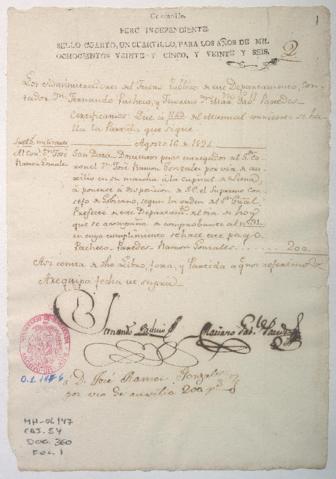 PERU INDEPENDIENTE
SELLO CUARTO, UN CUARTILLO, PARA LOS AÑOS DE MIL
OCHOCIENTOS VEINTE Y CINCO, Y VEINTE Y SEIS.
Los Administradores del Tesoro Publico de este Departamento, Con-
tador Dn. Fernando Pacheco, y Tesorero Dn. Mariano Paredes
Certificamos Que à del Manual corriente se ha-
lla la Partida que sigue
Agosto 16 de 1824
Son Data Doscientos pesos entregados al Sor. Co-
ronel Dn. José Ramon Gonzales por via de au-
xilio en su marcha à la Capital de Lima,
à ponerse à disposicion de S.E. el Supremo Con-
sejo de Gobierno, segun la orden del Sor. Gral.
Prefecto de este Departamto. del dia de hoy
que se acompaña de comprobante al
en cuya cumplimiento se hace este pago
Pacheco. Paredes. Ramon Gonzales 200
Asi consta de dho Libro, foxa, y Partida à que nos referimos
Arequipa fecha ut supra
A D. José Ramon Gonzales
por via de auxilio 200 ps
MH-OL 147
CAJ. 54
DOC. 360
FOL. 1